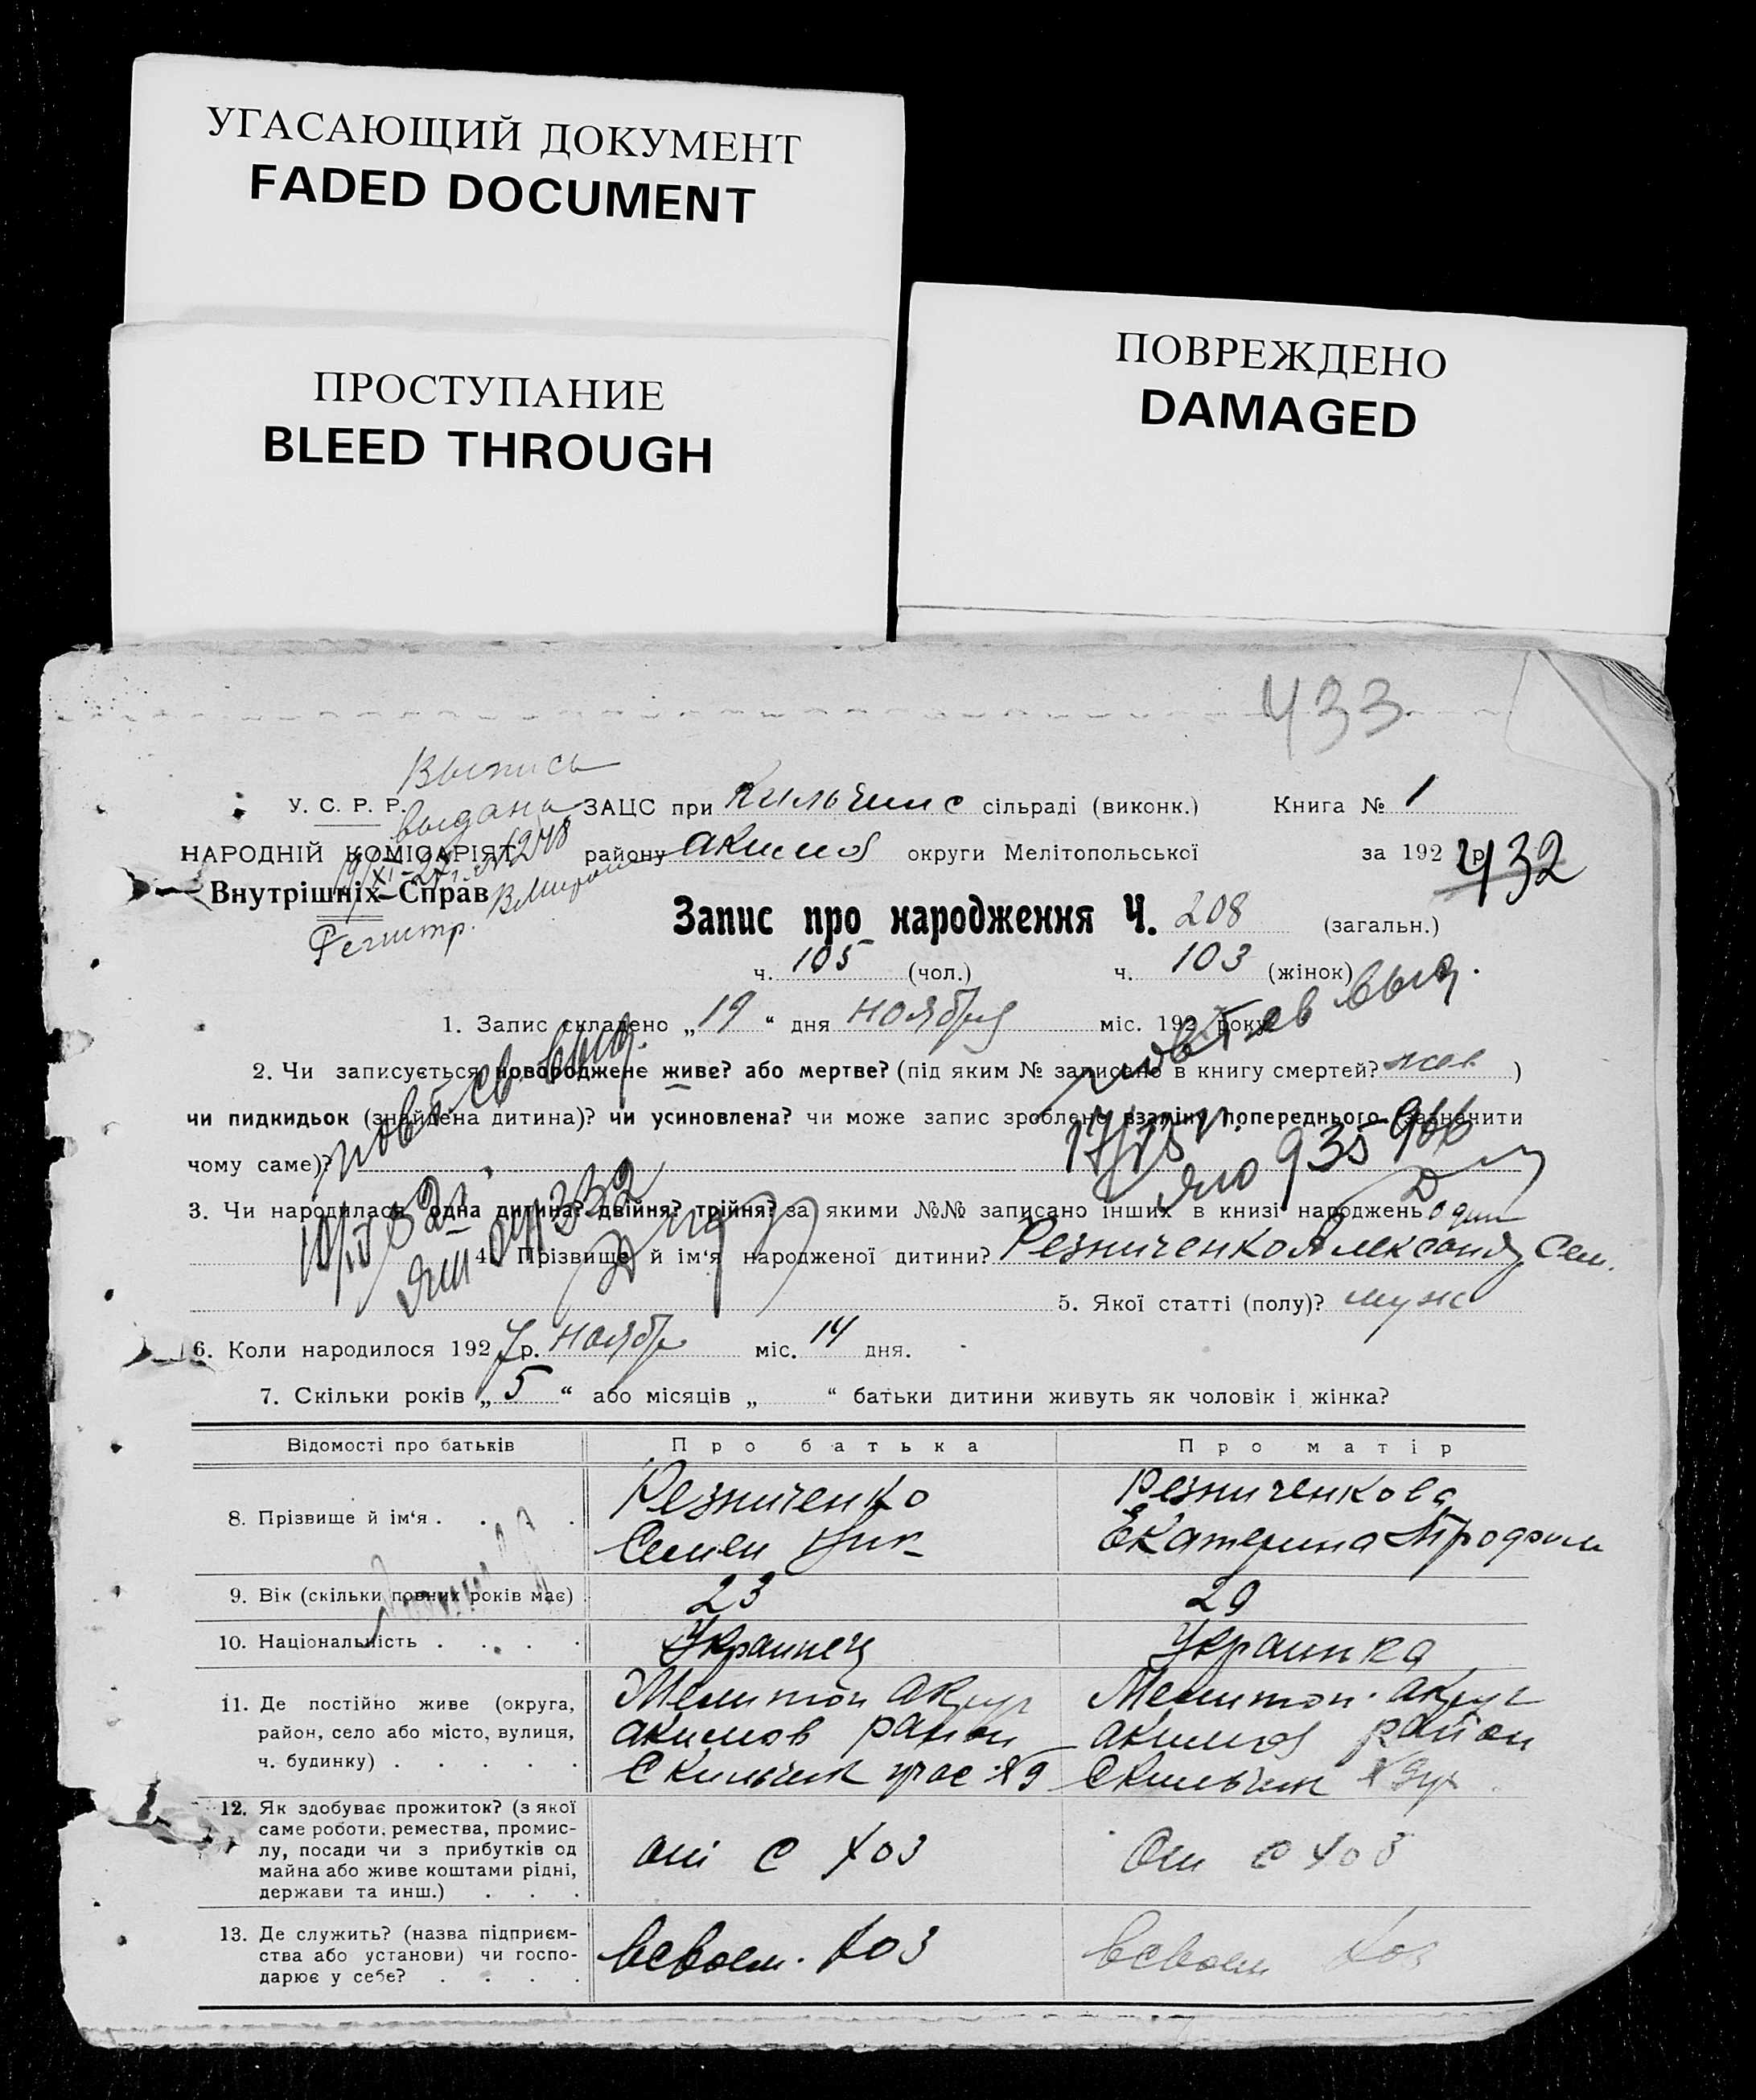 УГАСАЮЩИЙ ДОКУМЕНТ
FADED DOCUMENT
ПРОСТУПАНИЕ
BLEED THROUGH
ПОВРЕЖДЕНО
DAMAGED
433
Выпись
выдана
У. С. Р. Р.
НАРОДНІЙ КОМІСАРІЯТ
Внутрішніх Справ
Регистр.
ЗАЦС при Кильчинс сільраді (виконк.) Книга № 1
району Акимов округи Мелітопольської за 192 р.
432
Запис про народження Ч. 208 (загальн.)
ч. 105 (чол.) ч. 103 (жінок)
1. Запис складено „19“ дня ноября міс. 192 року
2. Чи записується новороджене живе? або мертве? (під яким № записано в книгу смертей? жив )
чи пидкидьок (знайдена дитина)? чи усиновлена? чи може запис зроблено взаміну попереднього (зазначити
чому саме)?
повт св выд.
935
3. Чи народилася одна дитина? двійня? трійня? за якими №№ записано інших в книзі народжень один
4. Прізвище й ім‘я народженої дитини? Резниченко Александ Сем.
5. Якої статті (полу)? муж
6. Коли народилося 1927 р. Ноябр міс. 14 дня.
7. Скільки років „5“ або місяців „ “ батьки дитини живуть як чоловік і жінка?
Відомості про батьків Про батька Про матір
8. Прізвище й ім‘я . . . . Резниченко Резниченкова
Семен Ник Екатерина Трофим
9. Вік (скільки повних років має) 23 29
10. Національність . . . . Украинец Украинка
11. Де постійно живе (округа, Мелитоп Округ Мелитоп. Округ
район, село або місто, вулиця, Акимов район Акимов район
ч. будинку) . . . . . С Кильчик С Кильчик
12. Як здобуває прожиток? (з якої
саме роботи, ремества, промис-
лу, посади чи з прибутків од
майна або живе коштами рідні, от с хоз От с хоз
держави та инш.) . . .
13. Де служить? (назва підприєм-
ства або установи) чи госпо- в своем. хоз в своем хоз
дарює у себе? . . . .